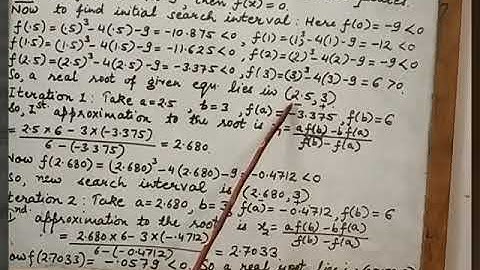 , then f(2)=0.
Now to find initial search interval: Here f(0)=-9<0
f(.5)=(.5)³-4(.5)-9=-10.875<0, f(1)=(1)³-4(1)-9=-12<0
f(1.5)=(1.5)³-4(1.5)-9=-11.625<0, f(2)=(2)³-4(2)-9=-9<0
f(2.5)=(2.5)³-4(2.5)-9=-3.375<0, f(3)=(3)³-4(3)-9=6>0.
So, a real root of given equ. lies in (2.5, 3)
Iteration 1: Take a=2.5, b=3, f(a)=-3.375, f(b)=6
So, 1st approximation to the root is x₁= af(b)-bf(a) / f(b)-f(a)
= 2.5×6-3×(-3.375) / 6-(-3.375) = 2.680
Now f(2.680)=(2.680)³-4(2.680)-9=-0.4712<0
So, new search interval is (2.680, 3)
Iteration 2: Take a=2.680, b=3, f(a)=-0.4712, f(b)=6
nd approximation to the root is x₂= af(b)-bf(a) / f(b)-f(a)
= 2.680×6-3×(-.4712) / 6-(-0.4712) = 2.7033
Now f(2.7033)=-.0579<0, So a real root lies in